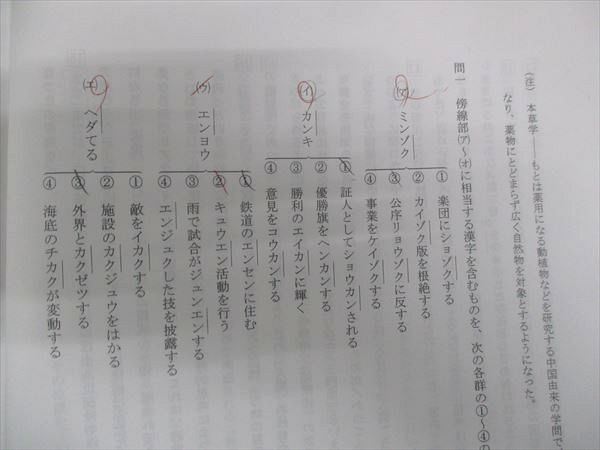 (注) 本草学――もとは薬用になる動植物などを研究する中国由来の学問で、
なり、薬物にとどまらず広く自然物を対象とするようになった。
問一 傍線部(ア)～(オ)に相当する漢字を含むものを、次の各群の①～④の
(ア) ミンゾク
① 楽団にショゾクする
② カイゾク版を根絶する
③ 公序リョウゾクに反する
④ 事業をケイゾクする
(イ) カンキ
① 証人としてショウカンされる
② 優勝旗をヘンカンする
③ 勝利のエイカンに輝く
④ 意見をコウカンする
(ウ) エンヨウ
① 鉄道のエンセンに住む
② キュウエン活動を行う
③ 雨で試合がジュンエンする
④ エンジュクした技を披露する
(エ) ヘダてる
① 敵をイカクする
② 施設のカクジュウをはかる
③ 外界とカクゼツする
④ 海底のチカクが変動する